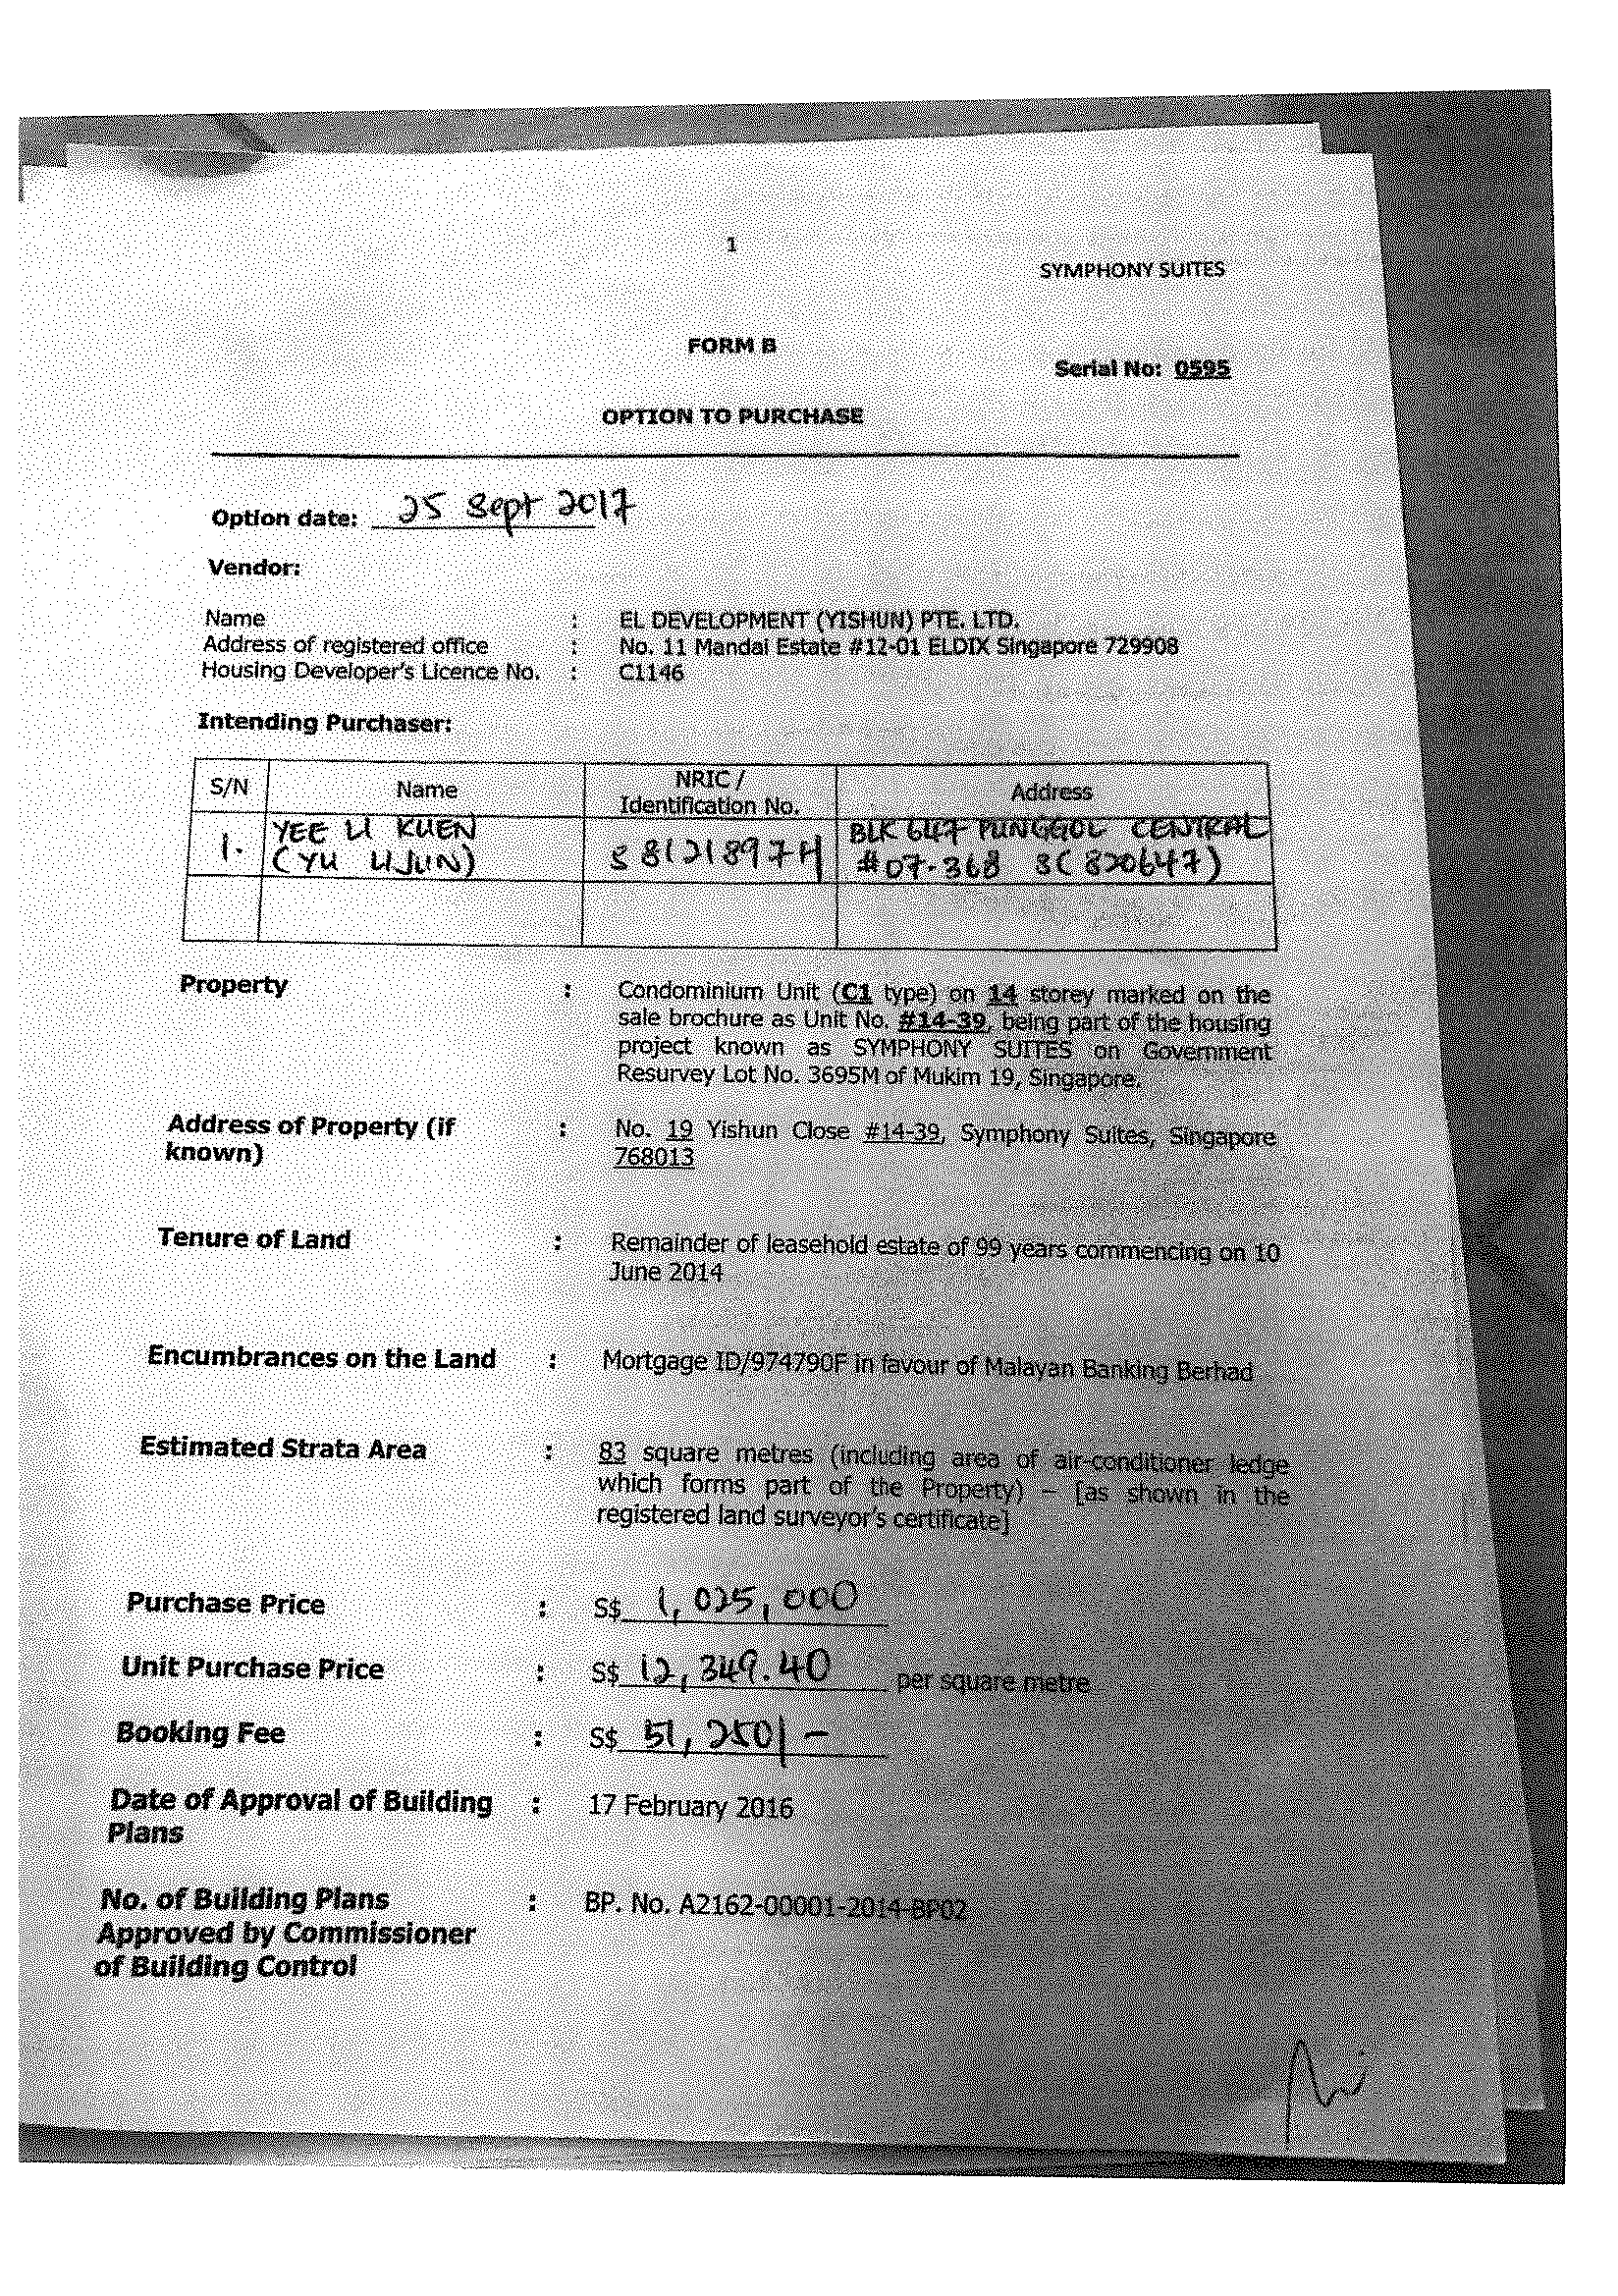 1
SYMPHONY SUITES
FORM B
Serial No: 0595
OPTION TO PURCHASE
Option date: 25 Sept 2017
Vendor:
Name : EL DEVELOPMENT (YISHUN) PTE. LTD.
Address of registered office : No. 11 Mandai Estate #12-01 ELDIX Singapore 729908
Housing Developer's Licence No. : C1146
Intending Purchaser:
S/N Name NRIC / Identification No. Address
1. YEE LI KUEN S8121897H BLK 647 PUNGGOL CENTRAL
(YU LIJUN) #07-368 S(820647)
Property : Condominium Unit (C1 type) on 14 storey marked on the
sale brochure as Unit No. #14-39, being part of the housing
project known as SYMPHONY SUITES on Government
Resurvey Lot No. 3695M of Mukim 19, Singapore.
Address of Property (if : No. 19 Yishun Close #14-39, Symphony Suites, Singapore
known) 768013
Tenure of Land : Remainder of leasehold estate of 99 years commencing on 10
June 2014
Encumbrances on the Land : Mortgage ID/974790F in favour of Malayan Banking Berhad
Estimated Strata Area : 83 square metres (including area of air-conditioner ledge
which forms part of the Property) – [as shown in the
registered land surveyor's certificate]
Purchase Price : S$ 1,025,000
Unit Purchase Price : S$ 12,349.40 per square metre
Booking Fee : S$ 51,250/-
Date of Approval of Building : 17 February 2016
Plans
No. of Building Plans : BP. No. A2162-00001-2014-BP02
Approved by Commissioner
of Building Control